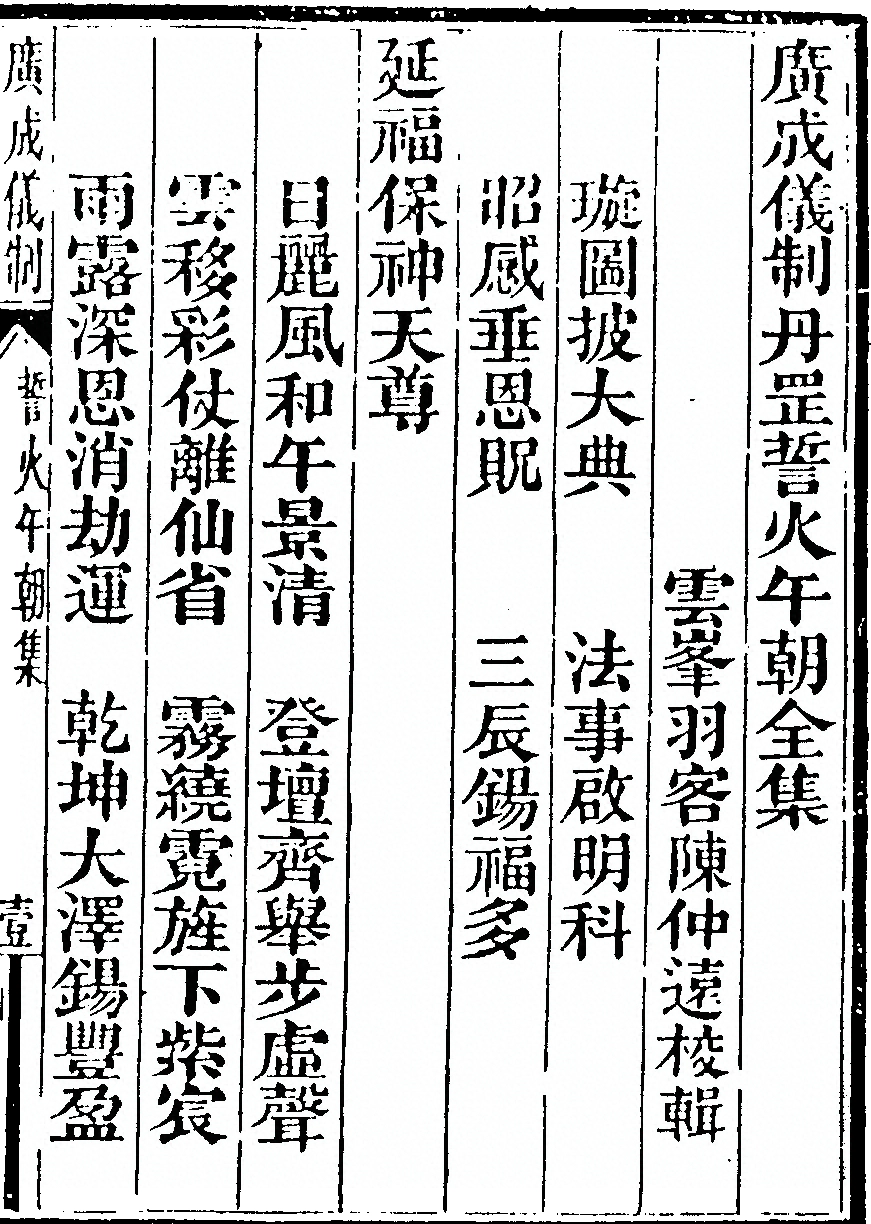 廣成儀制丹罡誓火午朝全集
雲峯羽客陳仲遠校輯
璇圖披大典　法事啟明科
昭感垂恩貺　三辰錫福多
延福保神天尊
日麗風和午景清　登壇齊舉步虛聲
雲移彩仗離仙省　霧繞霓旌下紫宸
雨露深恩消劫運　乾坤大澤錫豐盈
廣成儀制　誓火午朝集　壹